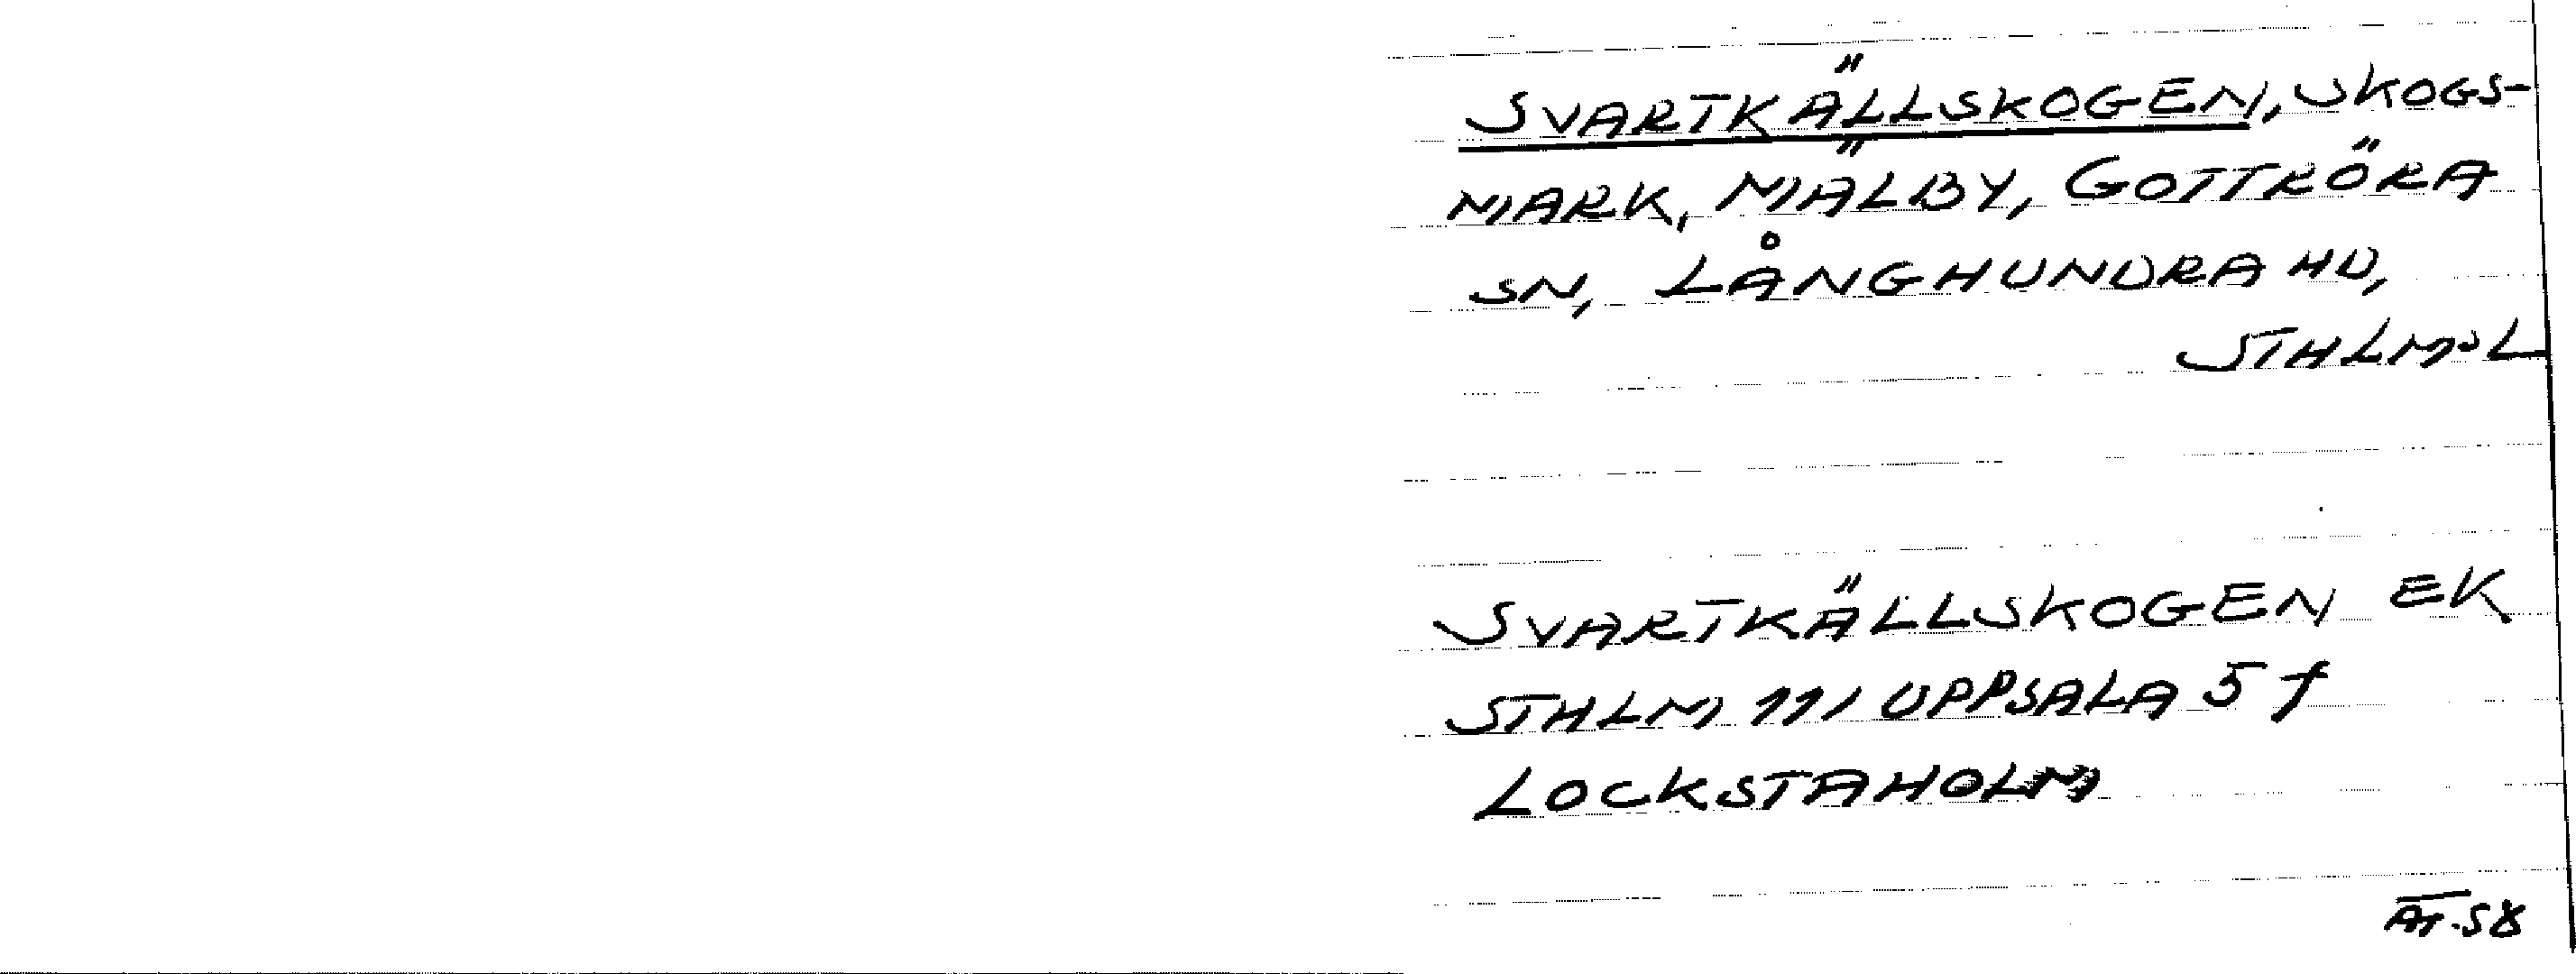 SVARTKÄLLSKOGEN, SKOGS-
MARK, MÄLBY, GOTTRÖRA
SN, LÅNGHUNDRA HD,
STHLMS L
SVARTKÄLLSKOGEN EK
STHLM 111 UPPSALA 5 f
LOCKSTAHOLM
AT-58